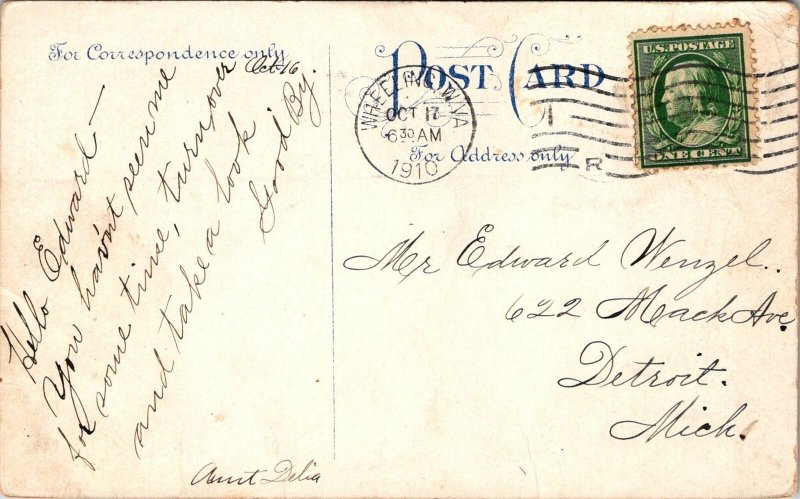 For Correspondence only
Oct-16
Hello Edward—
You hav'nt seen me
for some time, turn over
and take a look.
Good By.
Aunt Delia
POST CARD
For Address only
WHEELING, W.VA.
OCT 17
6 30 AM
1910
R
U.S. POSTAGE
ONE CENT
Mr Edward Wenzel.
622 Mack Ave.
Detroit.
Mich.